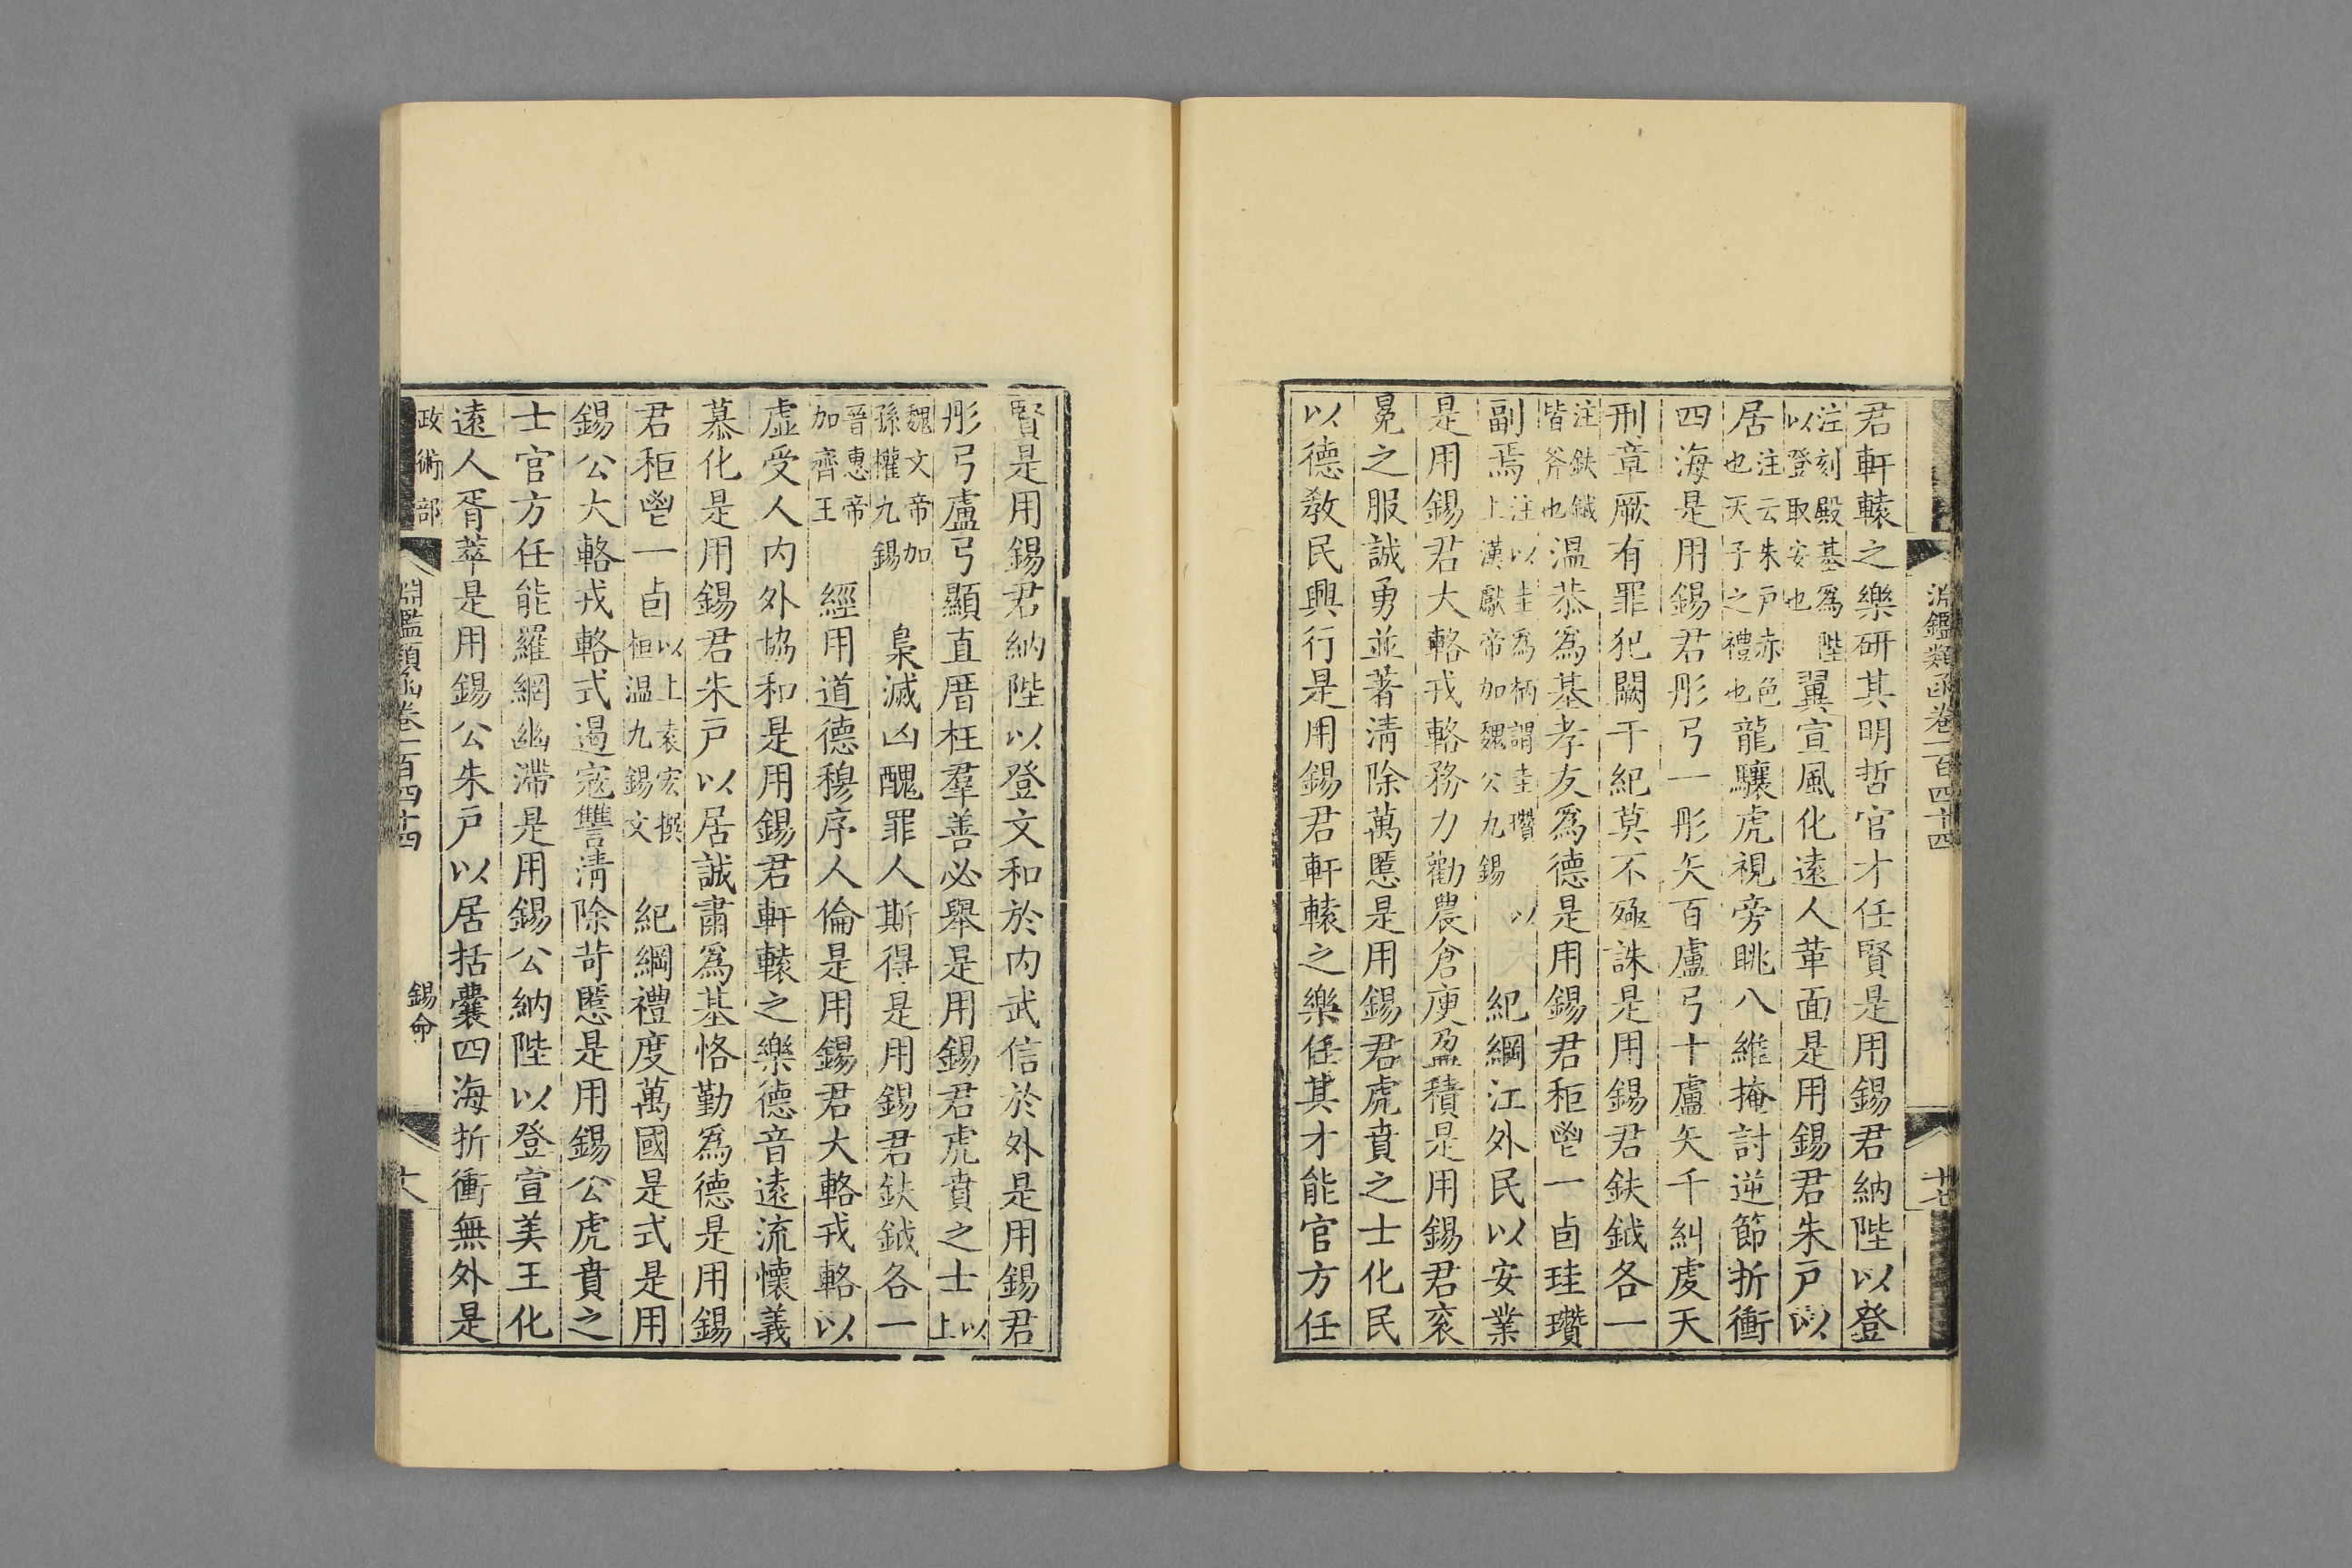 淵鑑類函卷一百四十四 十七
君軒轅之樂研其明哲官才任賢是用錫君納陛以登
注刻殿基爲陛
以登取安也
翼宣風化遠人革面是用錫君朱戸以
居
注云朱戸赤色
也天子之禮也
龍驤虎視旁眺八維掩討逆節折衝
四海是用錫君彤弓一彤矢百盧弓十盧矢千糾虔天
刑章厥有罪犯闕干紀莫不殛誅是用錫君鈇鉞各一
注鈇鉞
皆斧也
溫恭爲基孝友爲德是用錫君秬鬯一卣珪瓚
副焉
注以圭爲柄謂圭瓚 以
上漢獻帝加魏公九錫
紀綱江外民以安業
是用錫君大輅戎輅務力勸農倉庾盈積是用錫君衮
冕之服誠勇並著清除萬慝是用錫君虎賁之士化民
以德敎民興行是用錫君軒轅之樂任其才能官方任
賢是用錫君納陛以登文和於内武信於外是用錫君
彤弓盧弓顯直厝枉羣善必舉是用錫君虎賁之士
以
上
魏文帝加
孫權九錫
梟滅凶醜罪人斯得是用錫君鈇鉞各一
晉惠帝
加齊王
經用道德穆序人倫是用錫君大輅戎輅以
虛受人内外協和是用錫君軒轅之樂德音遠流懷義
慕化是用錫君朱戸以居誠肅爲基恪勤爲德是用錫
君秬鬯一卣
以上袁宏撰
桓溫九錫文
紀綱禮度萬國是式是用
錫公大輅戎輅式遏寇讐清除苛慝是用錫公虎賁之
士官方任能羅網幽滯是用錫公納陛以登宣美王化
遠人胥萃是用錫公朱戸以居括囊四海折衝無外是
政術部 淵鑑類函卷一百四十四 錫命 十八